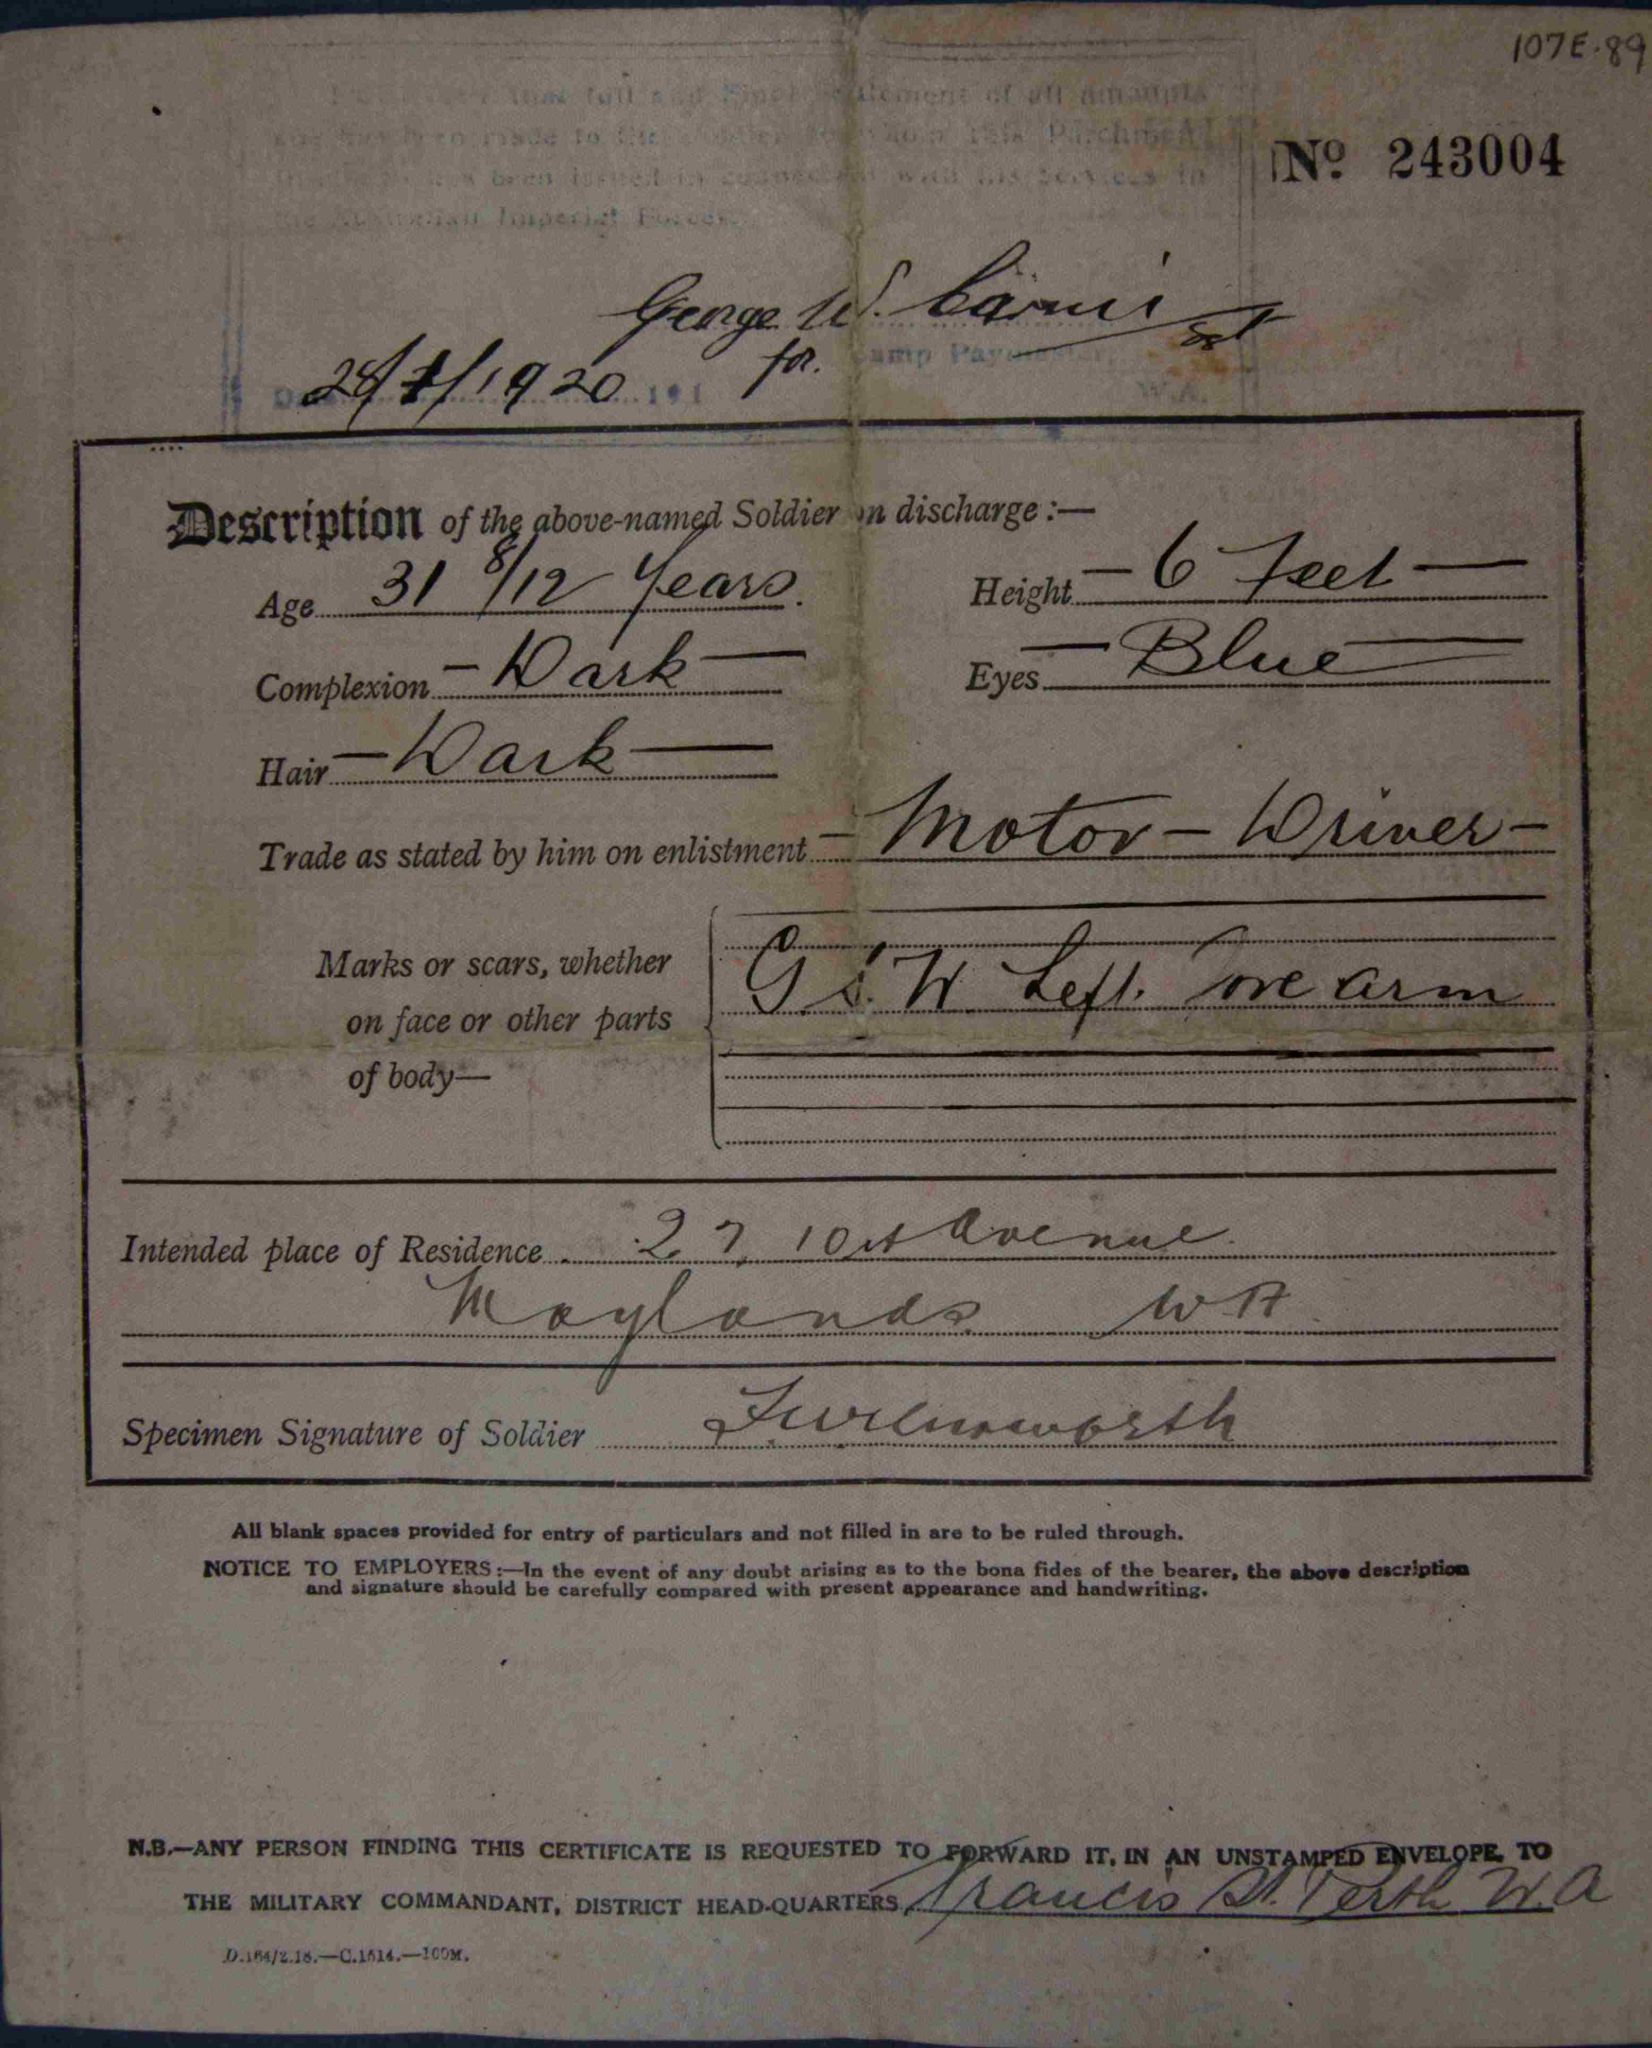 107E.89
that full and Final Settlement of all amounts
made to the this Parchment
has been issued in connection with his services in
the Australian Imperial Forces.
No. 243004
George W.
for Camp Paymaster,
1920 191 W.A.
Description of the above-named Soldier on discharge :—
Age 31 8/12 Years. Height — 6 Feet —
Complexion — Dark — Eyes — Blue —
Hair — Dark —
Trade as stated by him on enlistment — Motor — Driver —
Marks or scars, whether
on face or other parts
of body—
G.S.W. Left. Fore arm
Intended place of Residence 27 10th Avenue
Maylands W A
Specimen Signature of Soldier
All blank spaces provided for entry of particulars and not filled in are to be ruled through.
NOTICE TO EMPLOYERS :—In the event of any doubt arising as to the bona fides of the bearer, the above description
and signature should be carefully compared with present appearance and handwriting.
N.B.—ANY PERSON FINDING THIS CERTIFICATE IS REQUESTED TO FORWARD IT, IN AN UNSTAMPED ENVELOPE, TO
THE MILITARY COMMANDANT, DISTRICT HEAD-QUARTERS, Francis St. Perth W.A
D.164/2.18.—C.1514.—100M.